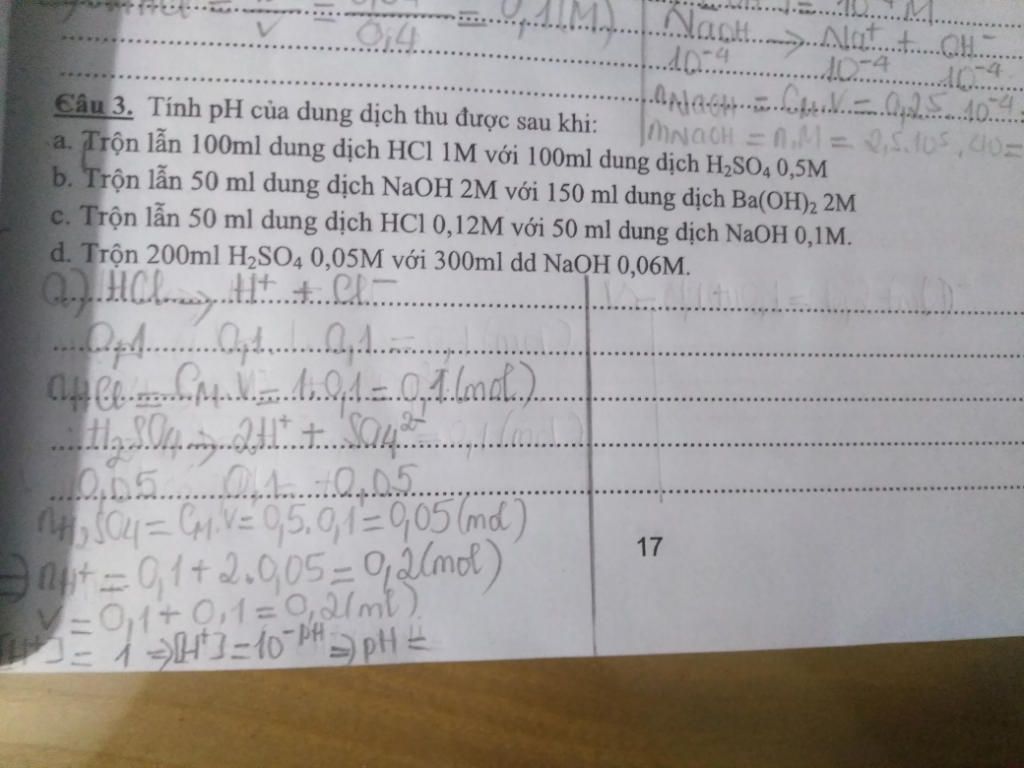 V 0,4 = 0,1(M)
NaOH → Na⁺ + OH⁻
10⁻⁴ 10⁻⁴ 10⁻⁴
nNaOH = CM.V = 0,25.10⁻⁴
mNaOH = n.M = 2,5.10⁵.40=
Câu 3. Tính pH của dung dịch thu được sau khi:
a. Trộn lẫn 100ml dung dịch HCl 1M với 100ml dung dịch H₂SO₄ 0,5M
b. Trộn lẫn 50 ml dung dịch NaOH 2M với 150 ml dung dịch Ba(OH)₂ 2M
c. Trộn lẫn 50 ml dung dịch HCl 0,12M với 50 ml dung dịch NaOH 0,1M.
d. Trộn 200ml H₂SO₄ 0,05M với 300ml dd NaOH 0,06M.
a) HCl → H⁺ + Cl⁻
0,1 0,1 0,1
nHCl = CM.V = 1.0,1 = 0,1(mol)
H₂SO₄ → 2H⁺ + SO₄²⁻
0,05 0,1 0,05
nH₂SO₄ = CM.V = 0,5.0,1 = 0,05(mol)
⇒ nH⁺ = 0,1 + 2.0,05 = 0,2(mol)
V = 0,1 + 0,1 = 0,2(ml)
[H⁺] = 1 ⇒ [H⁺] = 10⁻ᵖᴴ ⇒ pH =
17